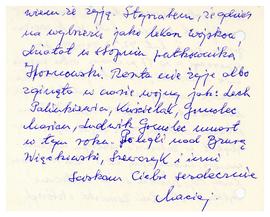 wiem że żyją. Słyszałem, że gdzieś
na wybrzeżu jako lekarz wojskowy
działał w stopniu pułkownika,
Hornowski. Reszta nie żyje albo
zginęła w czasie wojny jak: Lech
Palinkiewicz, Kuścielak, Gomolec
Marian, Ludwik Gomolec umarł
w tym roku. Polegli nad Bzurą
Więckowski, Szewczyk i inni
Ściskam Ciebie serdecznie
Maciej.